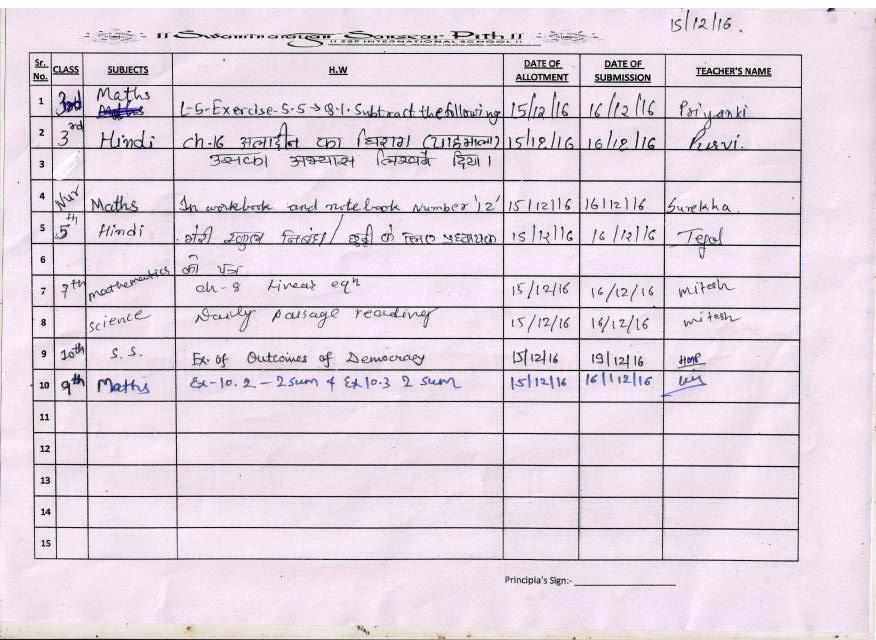 15/12/16.
|| Swaminarayan Sanskar Pith ||
|| SSP INTERNATIONAL SCHOOL ||
Sr. No. CLASS SUBJECTS H.W DATE OF ALLOTMENT DATE OF SUBMISSION TEACHER'S NAME
1 3rd Maths L-5-Exercise-5.5 → Q.1. Subtract the following 15/12/16 16/12/16 Priyanki
2 3rd Hindi ch-16 अलादीन का चिराग (पाठमाला) 15/12/16 16/12/16 Purvi.
3 उसका अभ्यास लिखने दिया।
4 Nur Maths In workbook and notebook Number '12' 15/12/16 16/12/16 Surekha.
5 5th Hindi मेरी स्कूल निबंध / छुट्टी के लिए प्रध्यापक 15/12/16 16/12/16 Tejal
6 को पत्र
7 7th mathematics ch-8 Linear eqn 15/12/16 16/12/16 mitesh
8 science Daily passage reading 15/12/16 16/12/16 mitesh
9 10th S.S. Ex. of Outcomes of Democracy 15/12/16 19/12/16
10 9th Maths Ex-10.2 - 2 sum & Ex 10.3 2 sum 15/12/16 16/12/16
11
12
13
14
15
Principla's Sign:-